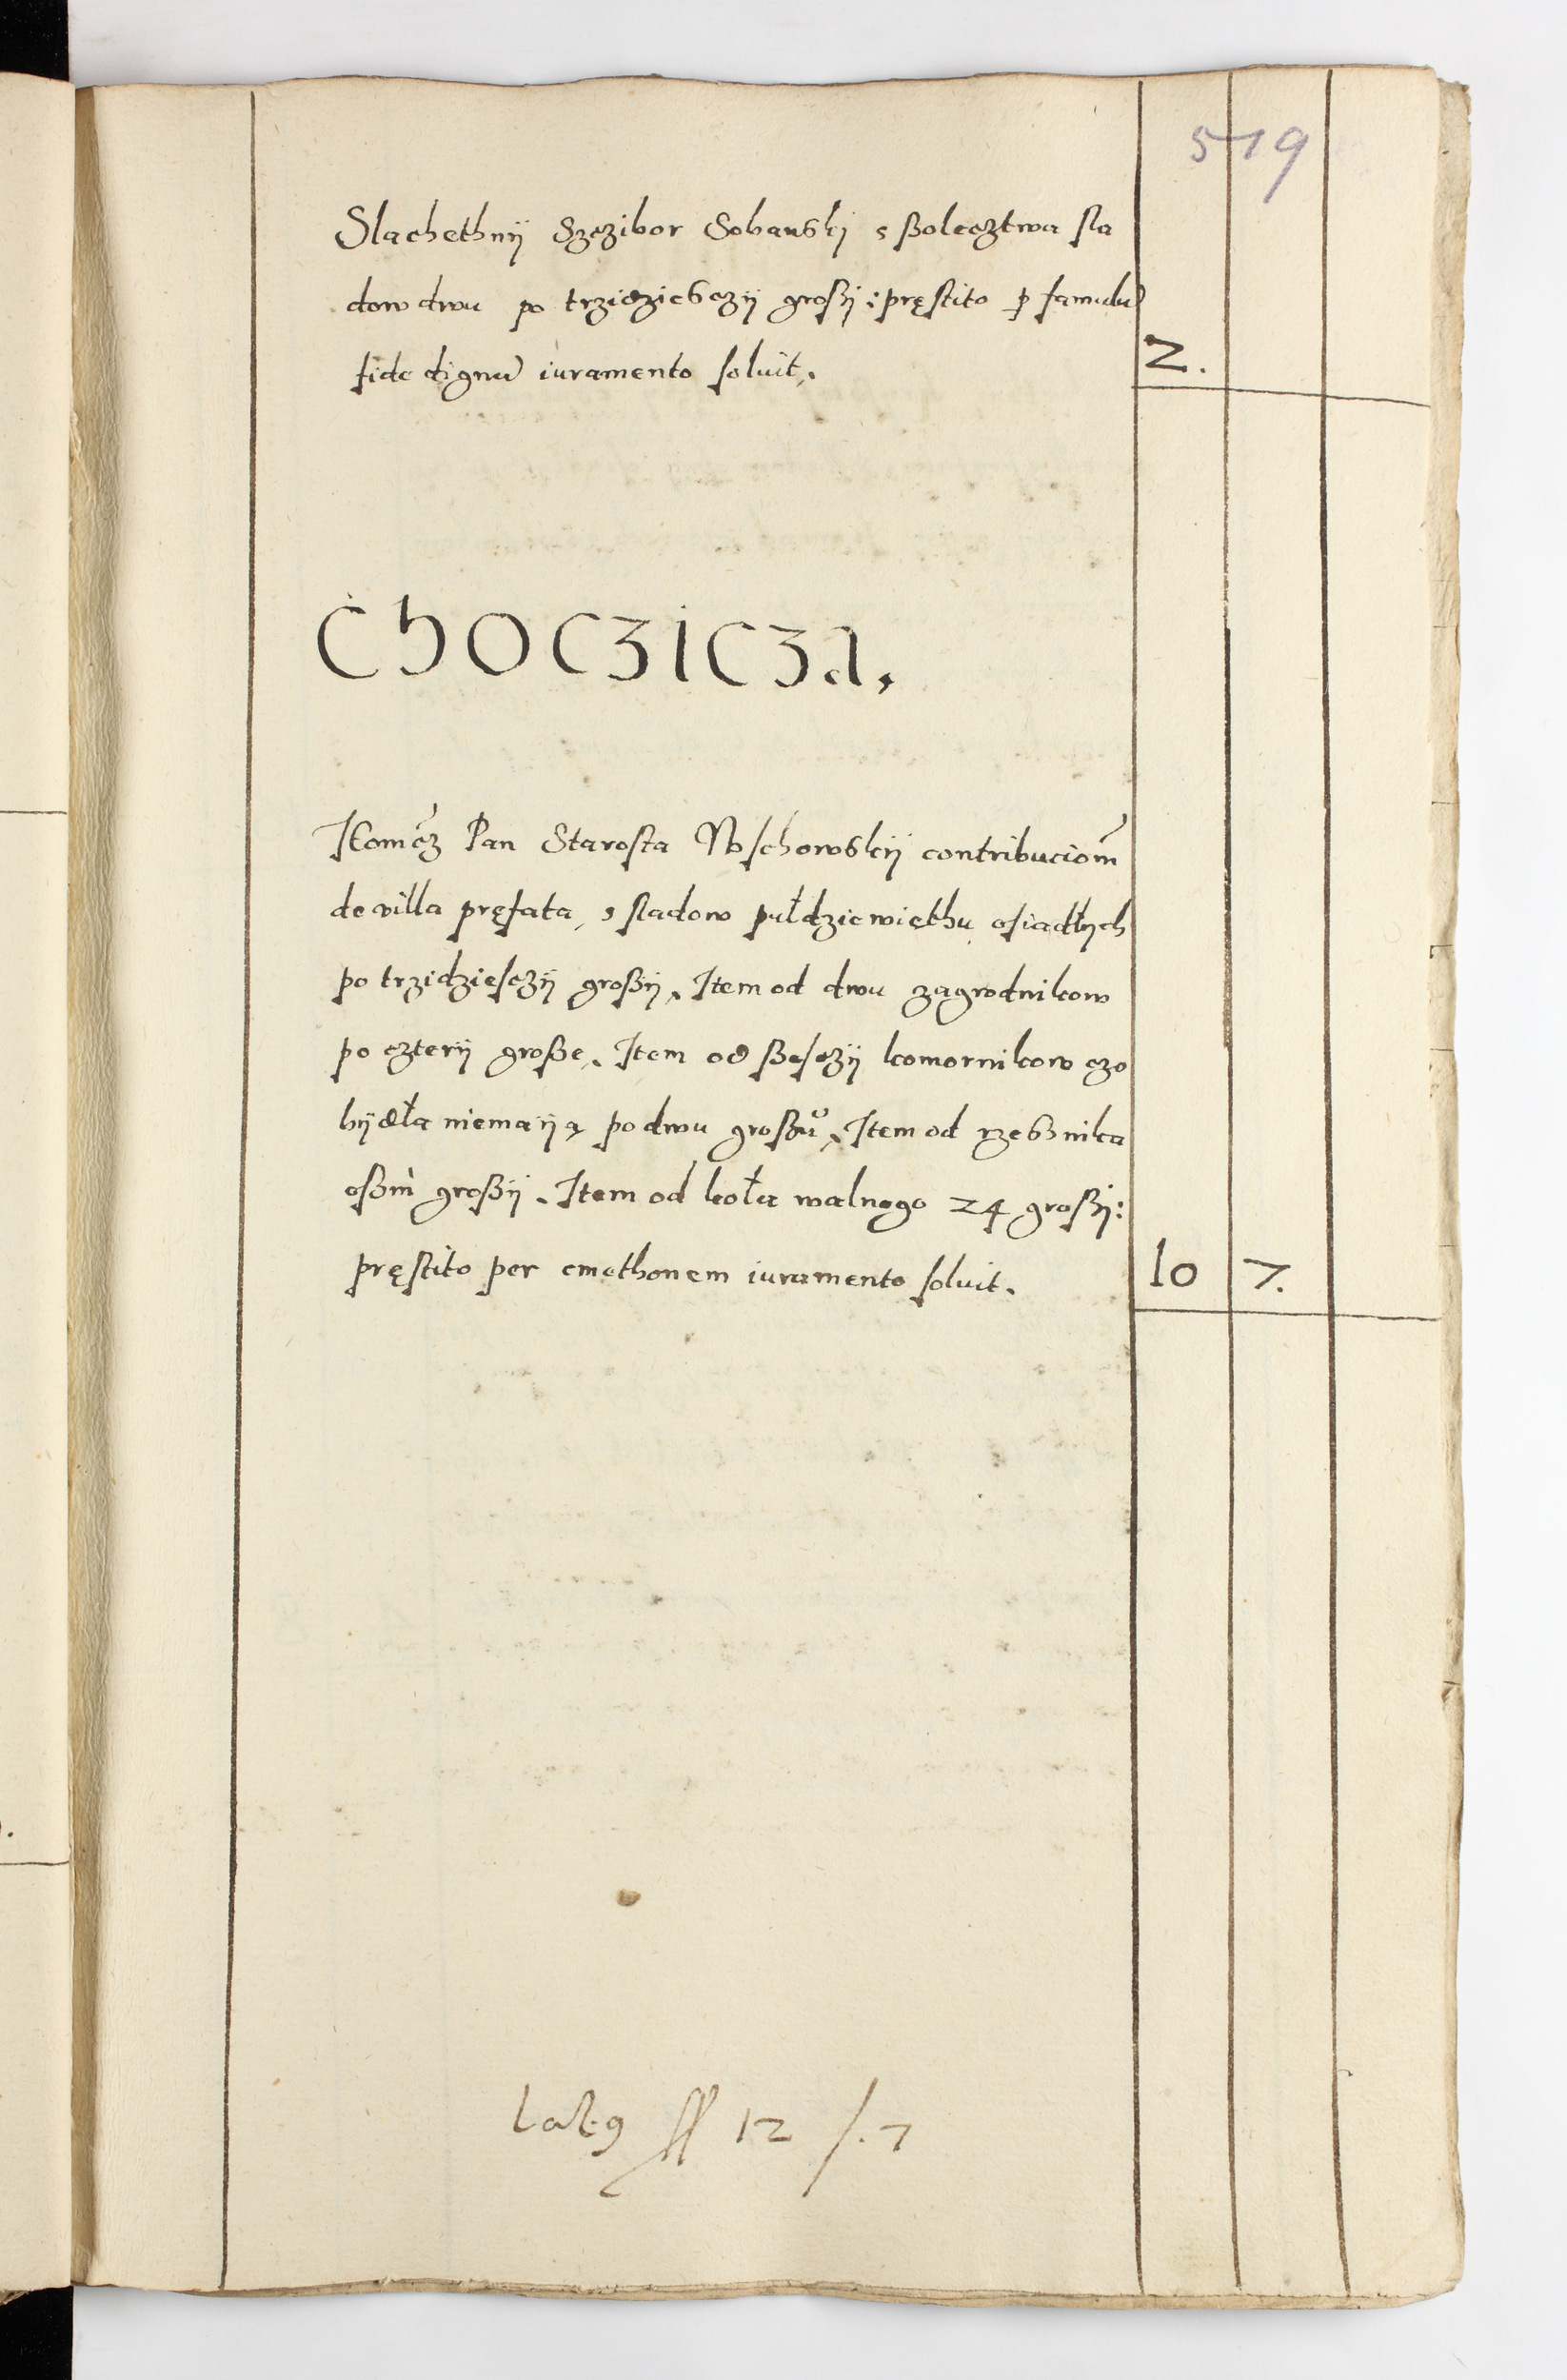 519
Slachethnÿ Szczibor Sobanskj s ßolecztwa sla
dow dwu po trzidziesczÿ großÿ: pręstito ꝑ famulū
fide dignū iuramento soluit.
2.
Choczicza.
Pan Starosta Wschowskÿ contribucionē
de villa pręfata, s sladow pułdziewiethu osiadłÿch
po trzidziesczÿ großÿ, Item od dwu zagrodnikow
po czterÿ große, Item od ßesczÿ komornikow czo
bÿdła niemaÿą po dwu großu, Item od rzesznika
oßm̀ großÿ. Item od koła walnego 24 großÿ:
pręstito per cmethonem iuramento soluit.
10 7.
latꝰ fl 12 /. 7